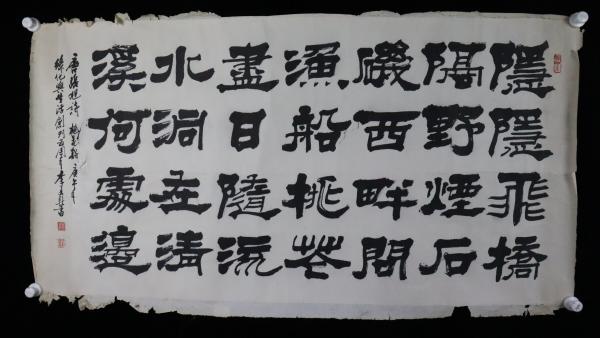 隱隱飛橋
隔野煙石
磯西畔問
漁船桃花
盡日隨流
水洞在清
溪何處邊
唐張旭詩 庚午
綠化與生活創刊五周年 書